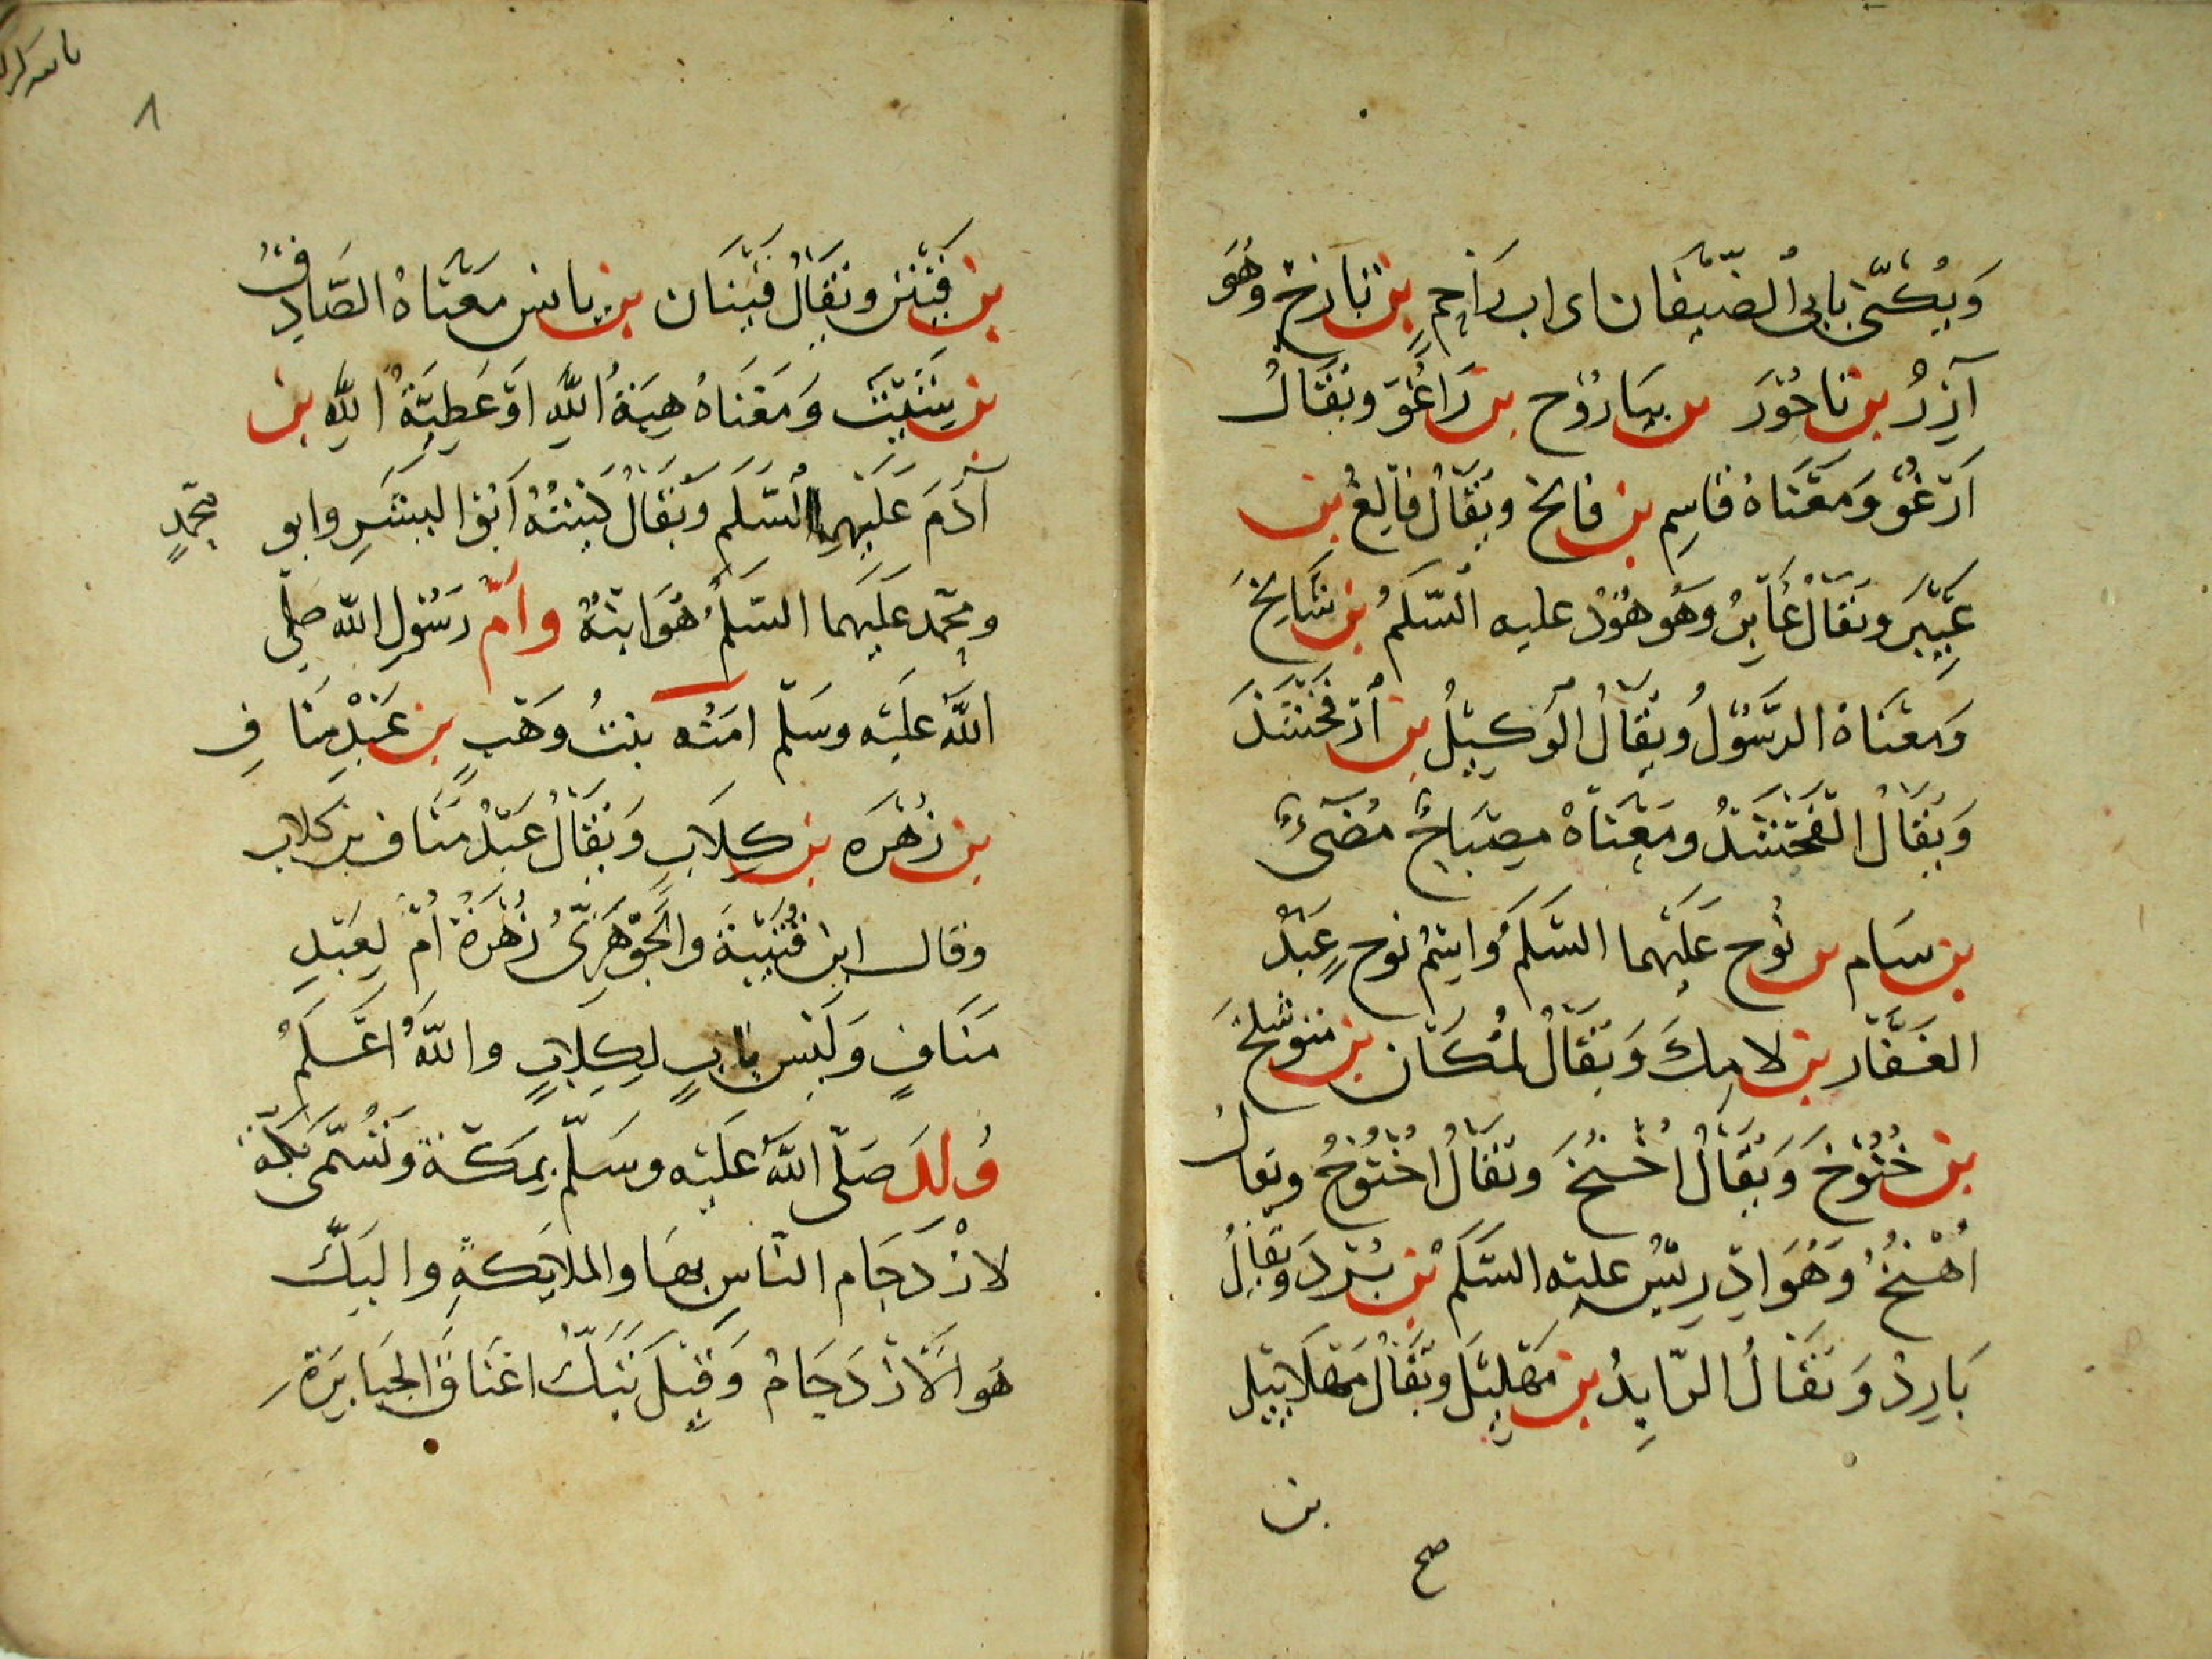 وَيُكَنّى بابى الضِّيفَان اى ابٍ رَاحِمٍ بن تَارَخ وهُوَ
آزرُ بن نَاحُوْرَ بن سَارُوْح بن رَاغُوْ وَيُقَالُ
اَرْغُوْ وَمَعْنَاهُ قَاسِم بن فالخ ويُقَالُ فالِغُ بن
عَيْبَرَ ويُقَالُ عَابِرُ وهُو هُوْدُ عليه السَّلَمُ بن شَالِخَ
وَمَعْنَاهُ الرَّسُوْلُ وَيُقَالُ الوَكِيْلُ بن اَرْفَخْشَذَ
وَيُقَالُ الفَخْشَذُ ومَعْنَاهُ مِصْبَاحٌ مُضىءٌ
بن سَام بن نُوح عَلَيْهما السَّلَمُ وَاِسْمُ نوحٍ عَبْدُ
الغَفَّار بن لامِكَ وَيُقَالُ لَمْكَان بن متوشلخَ
بن خُنُوْخَ وَيُقَالُ اخْنُخَ وَيُقَالُ اخْنُوْخُ ويقالُ
اُهْنُخُ وَهُوَ اِدْرِيْسُ عليه السَّلَمُ بن يَرْدَ ويُقَالُ
يَارِدُ وَيُقَالُ الرّايدُ بن مَهْلِيْلَ ويُقَالُ مَهْلَايِيْل
بن
صح
ناسركرك
٨
بن قَيْنَن ويُقَالُ قَيْنَان بن يانس مَعْنَاهُ الصَّادِقُ
بن شِيْثَ وَمَعْنَاهُ هِبَةُ اللّهِ اَوْ عَطِيَّةُ اللّهِ بن
آدَمَ عَلَيْهِمَا السَّلَمُ وَيُقَالُ كُنْيَتُهُ اَبُوْ البَشَرِ وابو محمدٍ
ومحمد عَلَيهما السَّلَمُ هُوَ ابنُهُ وأمّ رَسُوْلِ اللّه صَلّى
اللّهُ عَلَيْه وسَلّم امنه بنتُ وهْبٍ بن عَبْدِ مَنَافِ
بن زُهْرَه بن كِلَابٍ وَيُقَالُ عَبْدُ مَنَاف بن كلابٍ
وقال ابن قُتَيْبَةَ والجَوْهَرِىُّ زُهْرَةُ اُمٌّ لِعَبْدِ
مَنَافٍ وَلَيْس بابٍ لِكِلَابٍ واللّهُ اعْلَمُ
وُلِدَ صَلّى اللّهُ عَلَيْه وسَلّم بِمَكّةَ وَتُسَمّى بَكّةَ
لازْدَحَام النّاسِ بهَا والملايكةِ والبَكُّ
هُوَ الازْدَحَامُ وَقِيْلَ تَبُكُّ اعْنَاقَ الجَبَابِرَةِ